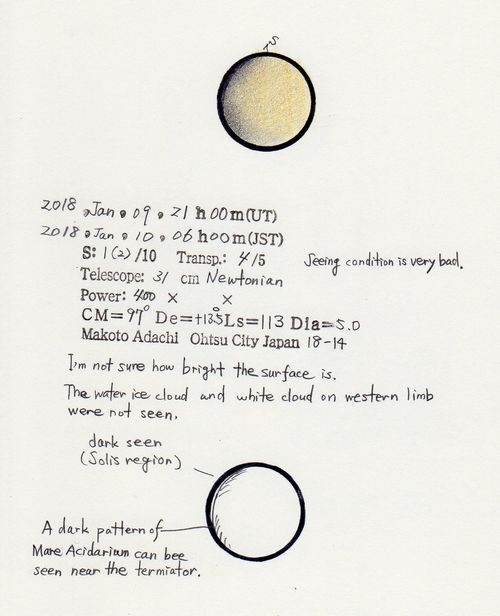 S
2018, Jan. 09. 21h00m(UT)
2018. Jan. 10. 06h00m(JST)
S: 1(2)/10 Transp.: 4/5 Seeing condition is very bad.
Telescope: 31 cm Newtonian
Power: 400 × ×
CM=97° De=+13.5° Ls=113 Dia=5.0
Makoto Adachi Ohtsu City Japan 18-14
I'm not sure how bright the surface is.
The water ice cloud and white cloud on western limb
were not seen.
dark seen
(Solis region)
A dark pattern of
Mare Acidarium can bee
seen near the termiator.